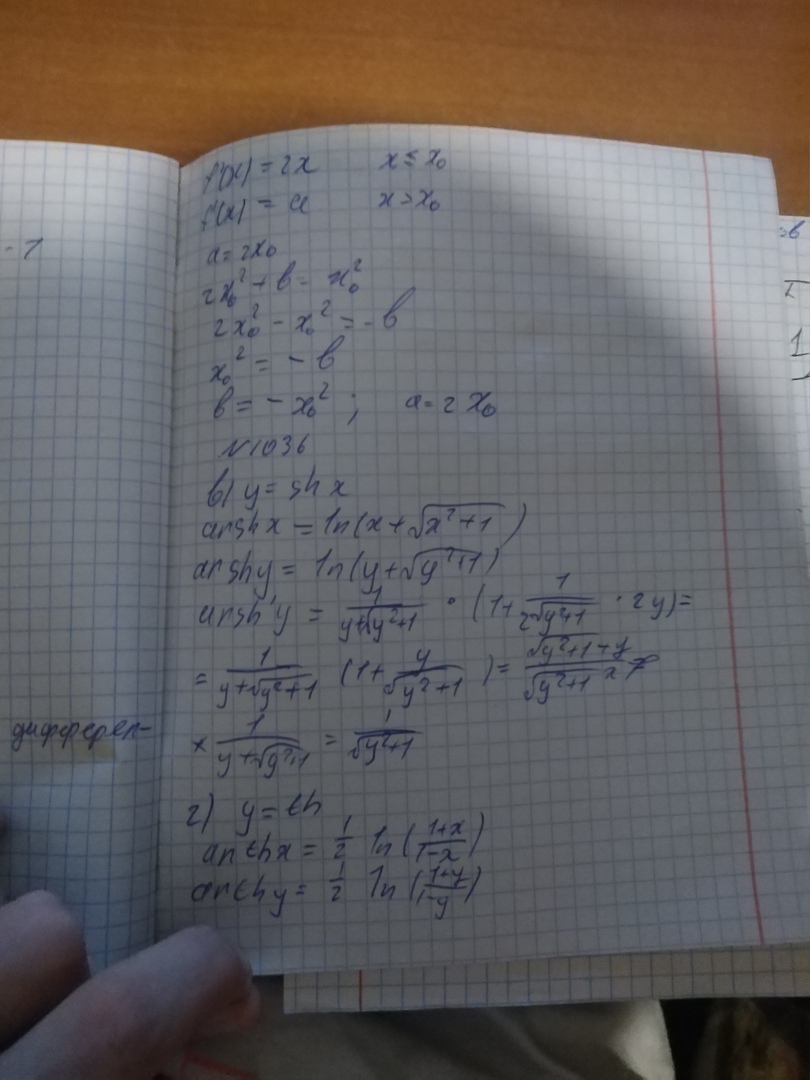 - 1
f'(x) = 2x x ≤ x₀
f'(x) = a x > x₀
a = 2x₀
2x₀² + в = x₀²
2x₀² - x₀² = - в
x₀² = - в
в = - x₀² ; a = 2x₀
N 1036
в) y = sh x
arsh x = ln(x + √(x² + 1))
arsh y = ln(y + √(y² + 1))
arsh' y = 1/(y + √(y² + 1)) · (1 + 1/(2√(y² + 1)) · 2y) =
= 1/(y + √(y² + 1)) (1 + y/√(y² + 1)) = (√(y² + 1) + y)/√(y² + 1) ×
× 1/(y + √(y² + 1)) = 1/√(y² + 1)
г) y = th
arth x = 1/2 ln((1+x)/(1-x))
arth y = 1/2 ln((1+y)/(1-y))
дифферен-
1